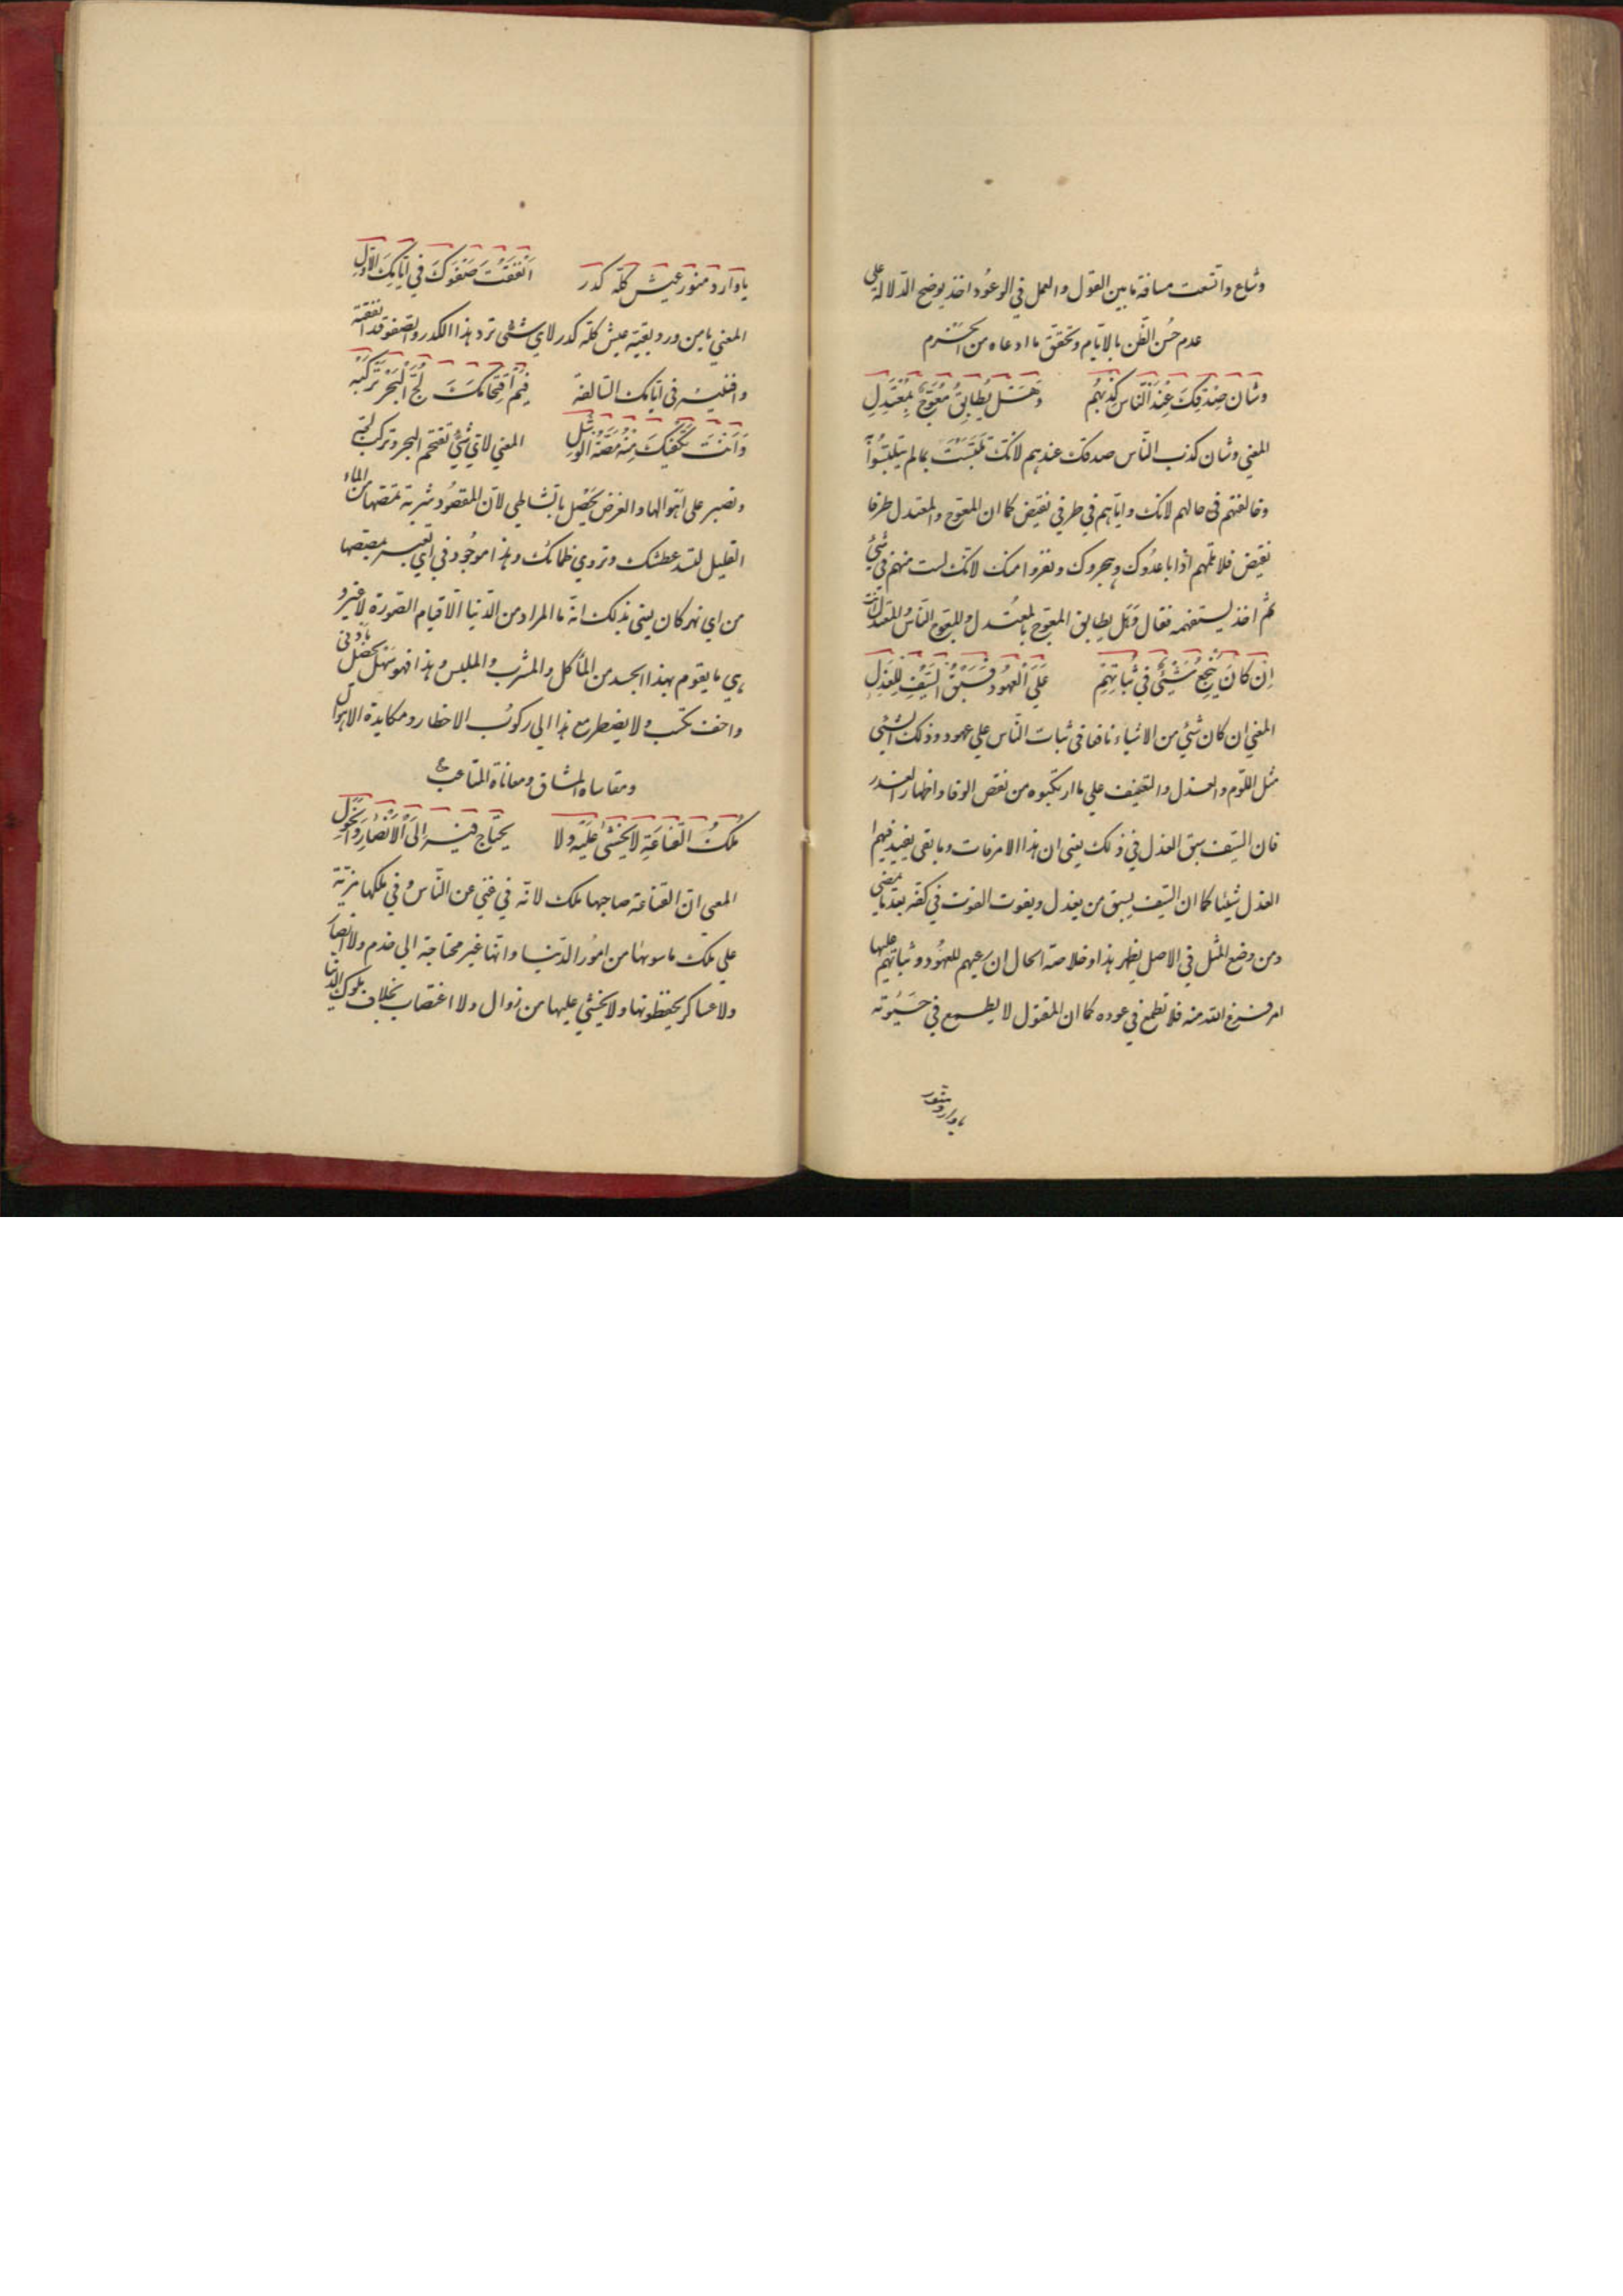 وشاع واتسعت مسافة ما بين القول والعمل في الوعود اخذ يوضح الدلالة علي
عدم حُسن الظن بالايام وتحقق ما ادعاه من الخرم
وشان صِدْقكَ عِنْدَ النّاسِ كِذبهُم وَهَـل يُطابَقُ مُعْوَجٌّ بِمُعْتَدِلِ
المعني وشان كذب النّاس صدقك عندهم لانك تلبّست بما لم يتلبّسُوا
وخالفتهم في حالهم لانك واياهم في طرفي نقيض كما ان المعوج والمعتدل طرفا
نقيض فلا تلمهم اذا باعدُوك وهجروك ونفروا منك لانك لست منهم في شئ
ثم اخذ يستفهمه فقال وهَل يطابق المعوج بالمعتدل والمعوج النّاس والمعتدل انت
اِن كَانَ يَنْجَع شَيْئٌ فِي ثَباتِهِم عَلَى الْعُهُود فَسَبْقُ السَّيْفِ لِلعَذَلِ
المعني ان كان شئ من الاشياء نافعا في ثبات النّاس علي عهود وذلك الشئي
مثل اللوم والعذل والتعنيف علي ما ارتكبوه من نقص الوفا واظهار الغدر
فان السّيف سبق العذل في ذلك يعني ان هذا الامر فات وما بقي يفيد فيهم
العذل شيئا كما ان السّيف يسبق من يعذل ويفوت الفوت في كفه بعد ما يمضي
ومن وضع المثل في الاصل يظهر هذا وخلاصة الحال ان رعيهم للعهود وثباتهم عليها
امر فرغ الله منه فلا تطمع في عوده كما ان المقتول لا يطمع في حَيٰوته
يا وارد سور
يا وارد سور عيش كله كدر اَنْفَقْتَ صَفْوَكَ فِي اَيّامِكَ الاُوَلِ
المعني يا من ورد بقية عيش كله كدر لاي شئي ترد هذا الكدر والصفو قد انفقته
وافنيته في ايامك السالفة فِيمَ اقْتِحامُكَ لُجَّ الْبَحْرِ تَرْكَبُه
وَاَنْتَ يَكْفِيكَ مِنْهُ مَصَّةُ الْوَشَلِ المعني لاي شئ تقتحم البحر وتركب لجته
وتصبر على اهوالها والغرض يحصل بالشاطي لان المقصُود شربة تمصها من الماء
القليل لتسد عطشك وتروي ظمائك وهذا موجُود في اي
من اي نهر كان يعني بذلك انه ما المراد من الدّنيا الا قيام الصّورة لا غير و
هي ما يقوم بهذا الجسد من المأكل والمشرب والملبس وهذا فهو سَهل يحصل بادني
واخف كسب ولا يضطر مع هذا الي ركُوب الاخطار ومكابدة الاهوال
ومقاساة المشاق ومعاناة المتاعب
مُلكُ الْقَناعَةِ لا يُخْشٰى عَلَيْهِ وَلا يحتاج فيـه اِلَى الْاَنْصارِ وَالْخَوَلِ
المعي ان القناعة صاحبها ملك لانه في غني عن النّاس وفي ملكها مزيّة
علي ملك ما سوٰها من امُور الدّنيا وانها غير محتاجة الي خدم ولا انصار
ولا عساكر يحفظونها ولا يخشي عليها من زوال ولا اغتصاب بخلاف ملوك الدنيا